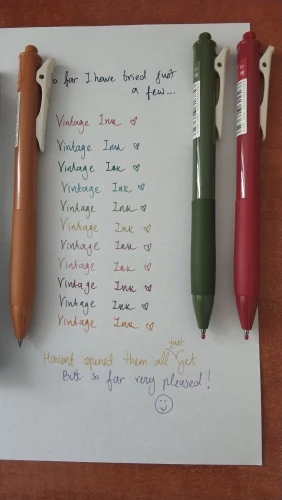 So far I have tried just
a few...
Vintage Ink
Vintage Ink
Vintage Ink
Vintage Ink
Vintage Ink
Vintage Ink
Vintage Ink
Vintage Ink
Vintage Ink
Vintage Ink
Vintage Ink
just
Havent opened them all yet
But so far very pleased!